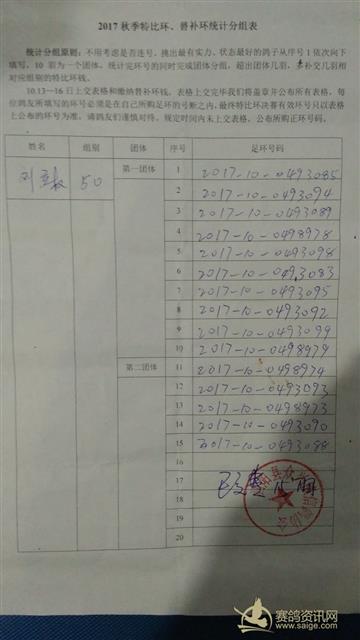 2017 秋季特比环、普补环统计分组表
统计分组原则：不用考虑是否连号，挑出最有实力、状态最好的鸽子从序号 1 依次向下
填写，10 羽为一个团体，统计完环号的同时完成团体分组，超出团体几羽，多补交几羽相
对应组别的特比环钱。
10.13—16 日上交表格和缴纳普补环钱。表格上交完毕我们将盖章并公布所有表格，每
位鸽友所填写的环号必须是在自己所购足环的号断之内，最终特比环决赛有效环号只以表格
上公布的环号为准，请鸽友们谨慎对待。规定时间内未上交表格，公布所购正环号码。
姓名 组别 团体 序号 足环号码
刘 50 第一团体 1 2017-10-0493085
2 2017-10-0493094
3 2017-10-0493089
4 2017-10-0498978
5 2017-10-0493098
6 2017-10-0493083
7 2017-10-0493095
8 2017-10-0493092
9 2017-10-0493099
10 2017-10-0498979
第二团体 11 2017-10-0498974
12 2017-10-0493093
13 2017-10-0498973
14 2017-10-0493090
15 2017-10-0493088
16
17
18
19
20
赛鸽资讯网
www.saige.com